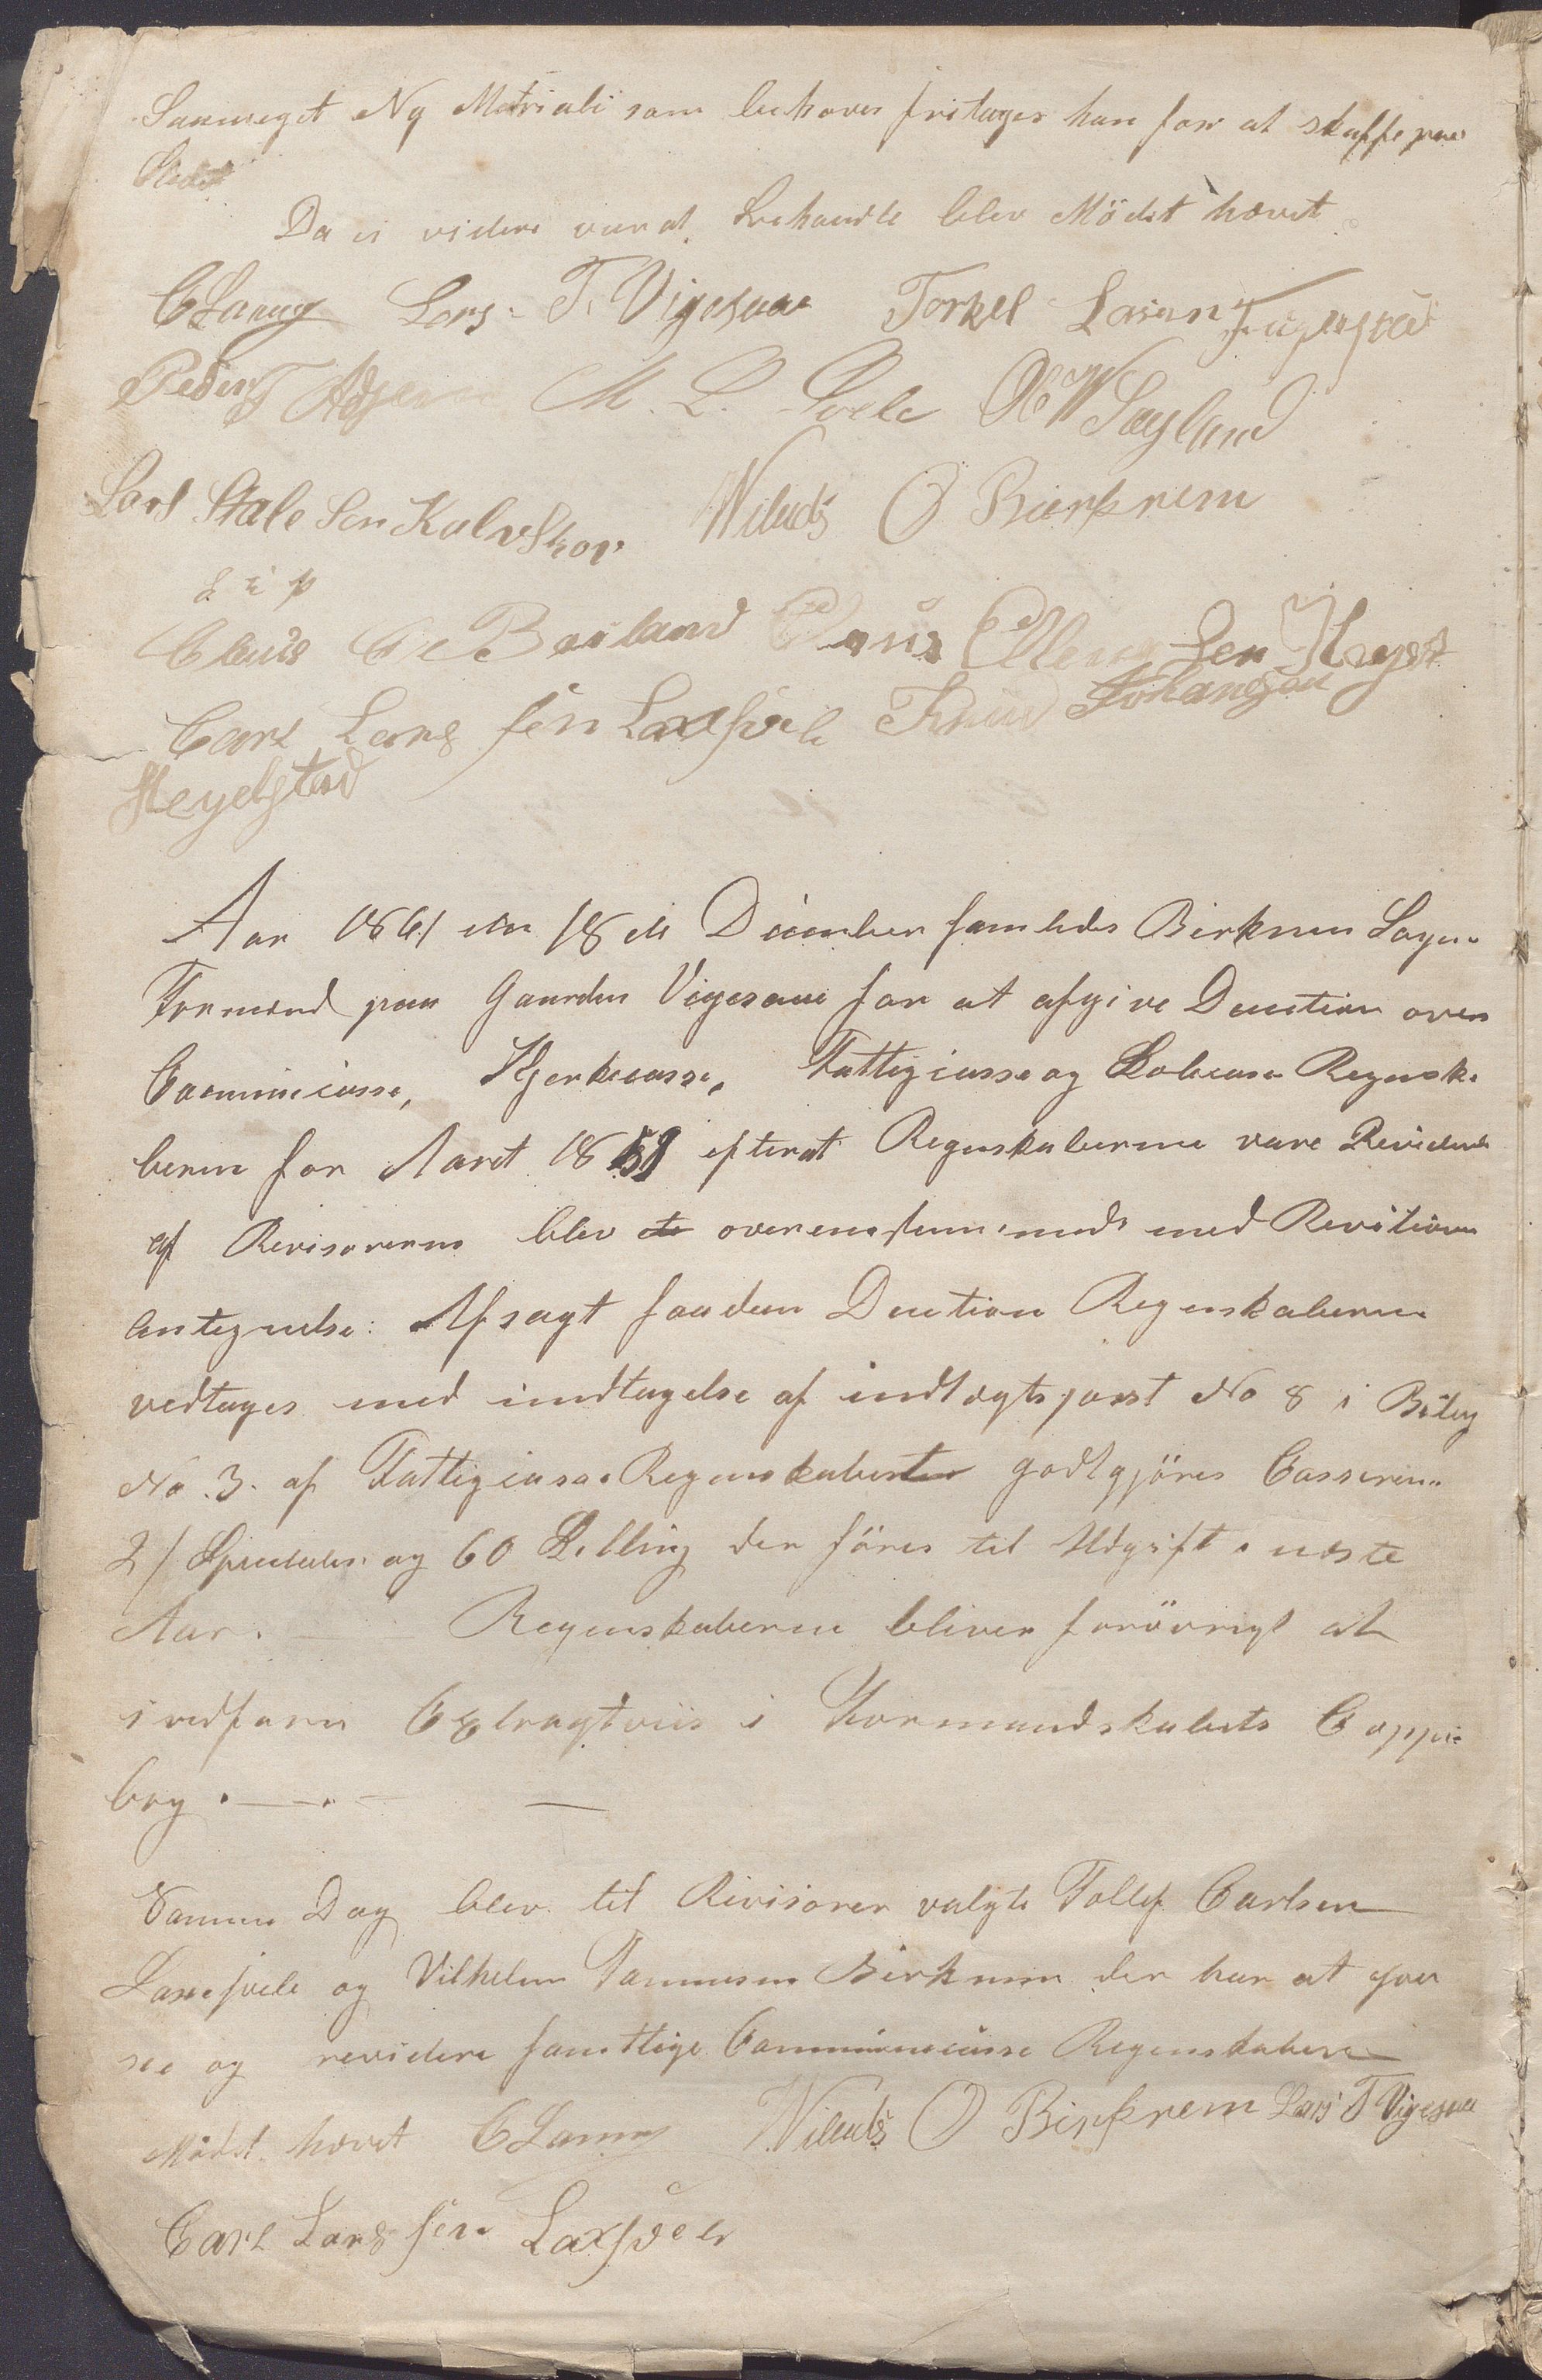 Saameget Ny Matriale som behoves fritages han for at skaffe paa
Stedet
Da ei videre var at behandle blev Mödet hævet
CLamy Lars T. Vigesaae Torkel Lasen Fugelstad
Peder T M. L. Svele Ole W Søyland
Lars Stale Sen Kalvskov Wilads O Bierkrem
Claus C Berland Elleng Sen Hegest
Carl Lars sen Laxsvele Knud Johansen
Hegelstad
Aar 1861 den 18de December samledes Birkrem Sogns
Formænd paa Gaarden Vigesaae for at afgive Decution over
Communecasse, Kjerkecasse, Fattigcasse og Skolecasse Regnska
berne for Aaret 1861 efterat Regnskaberne vare Reviderede
af Revisorerne blev overensstemmende med Revitions
Antegnelse: Afsagt saadan Decution Regnskaberne
vedtages med undtagelse af indtægtspost No 8 i Bilag
No 3. af Fattigcasse Regnskabet godtgjöres Casseren
2/ Speciedaler og 60 Skilling der föres til Udgift næste
Aar. Regnskaberne bliver forövrigt at
indføre Extragtviis i Formandskabets Coppie
bog.
Samme Dag blev til Revisorer valgte Tollef Carlsen
Laxesvele og Vilhelm Tønnesen Birkrem der har at gjen
see og revidere samtlige Communecasse Regnskaber
Mödet hævet CLamy Wilads O Birkrem Lars T Vigesaa
Carl Lars sen Laxsvele